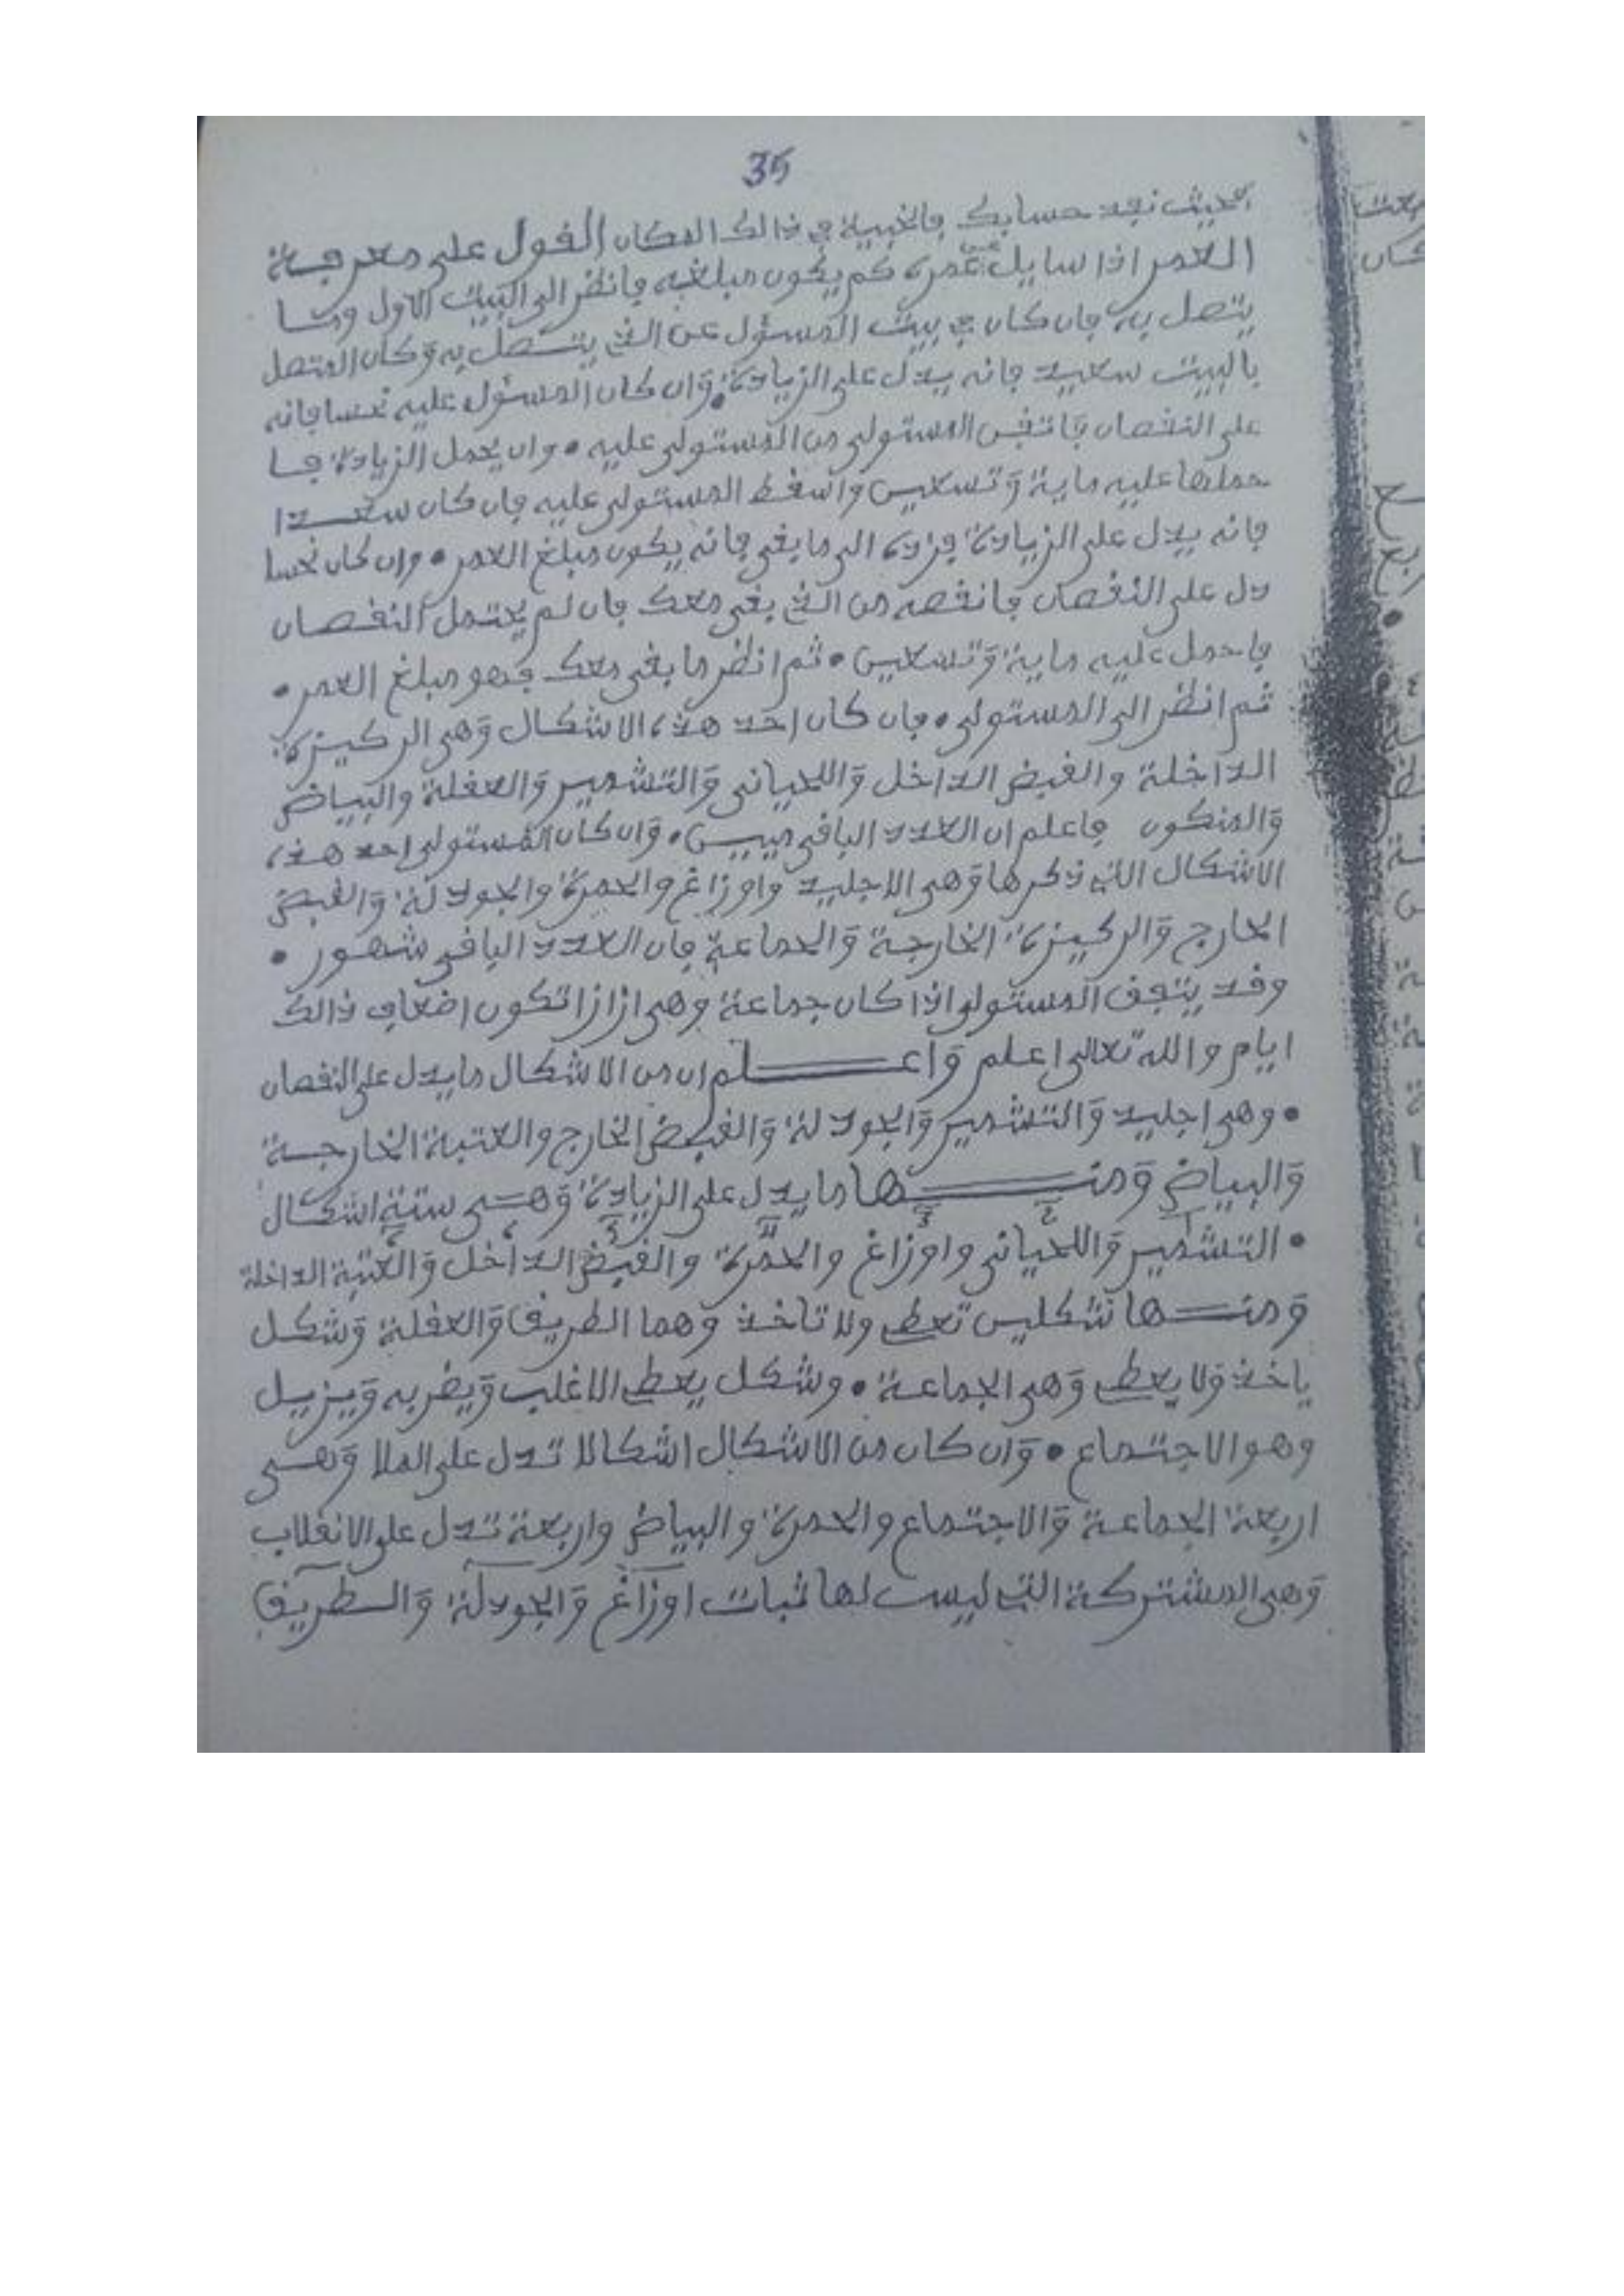 35
بحيث نفد حسابك فالخبية في ذالك المكان القول على معرفة
العمر اذا سايل عن عمره كم يكون مبلغه فانظر الى البيت الاول وما
يتصل به فان كان في بيت المسئول عن الذي يتصل به وكان المتصل
بالبيت سعيد فانه يدل على الزيادة وان كان المسئول عليه نحسا فانه
على النقصان فانقص المستولى من المستولى عليه • وان يحمل الزيادة فا
حملها عليه ماية وتسعين واسقط المستولى عليه فان كان سعدا
فانه يدل على الزيادة فزده الى ما بقى فانه يكون مبلغ العمر • وان كان نحسا
دل على النقصان فانقصه من الذي بقى معك فان لم يحتمل النقصان
فاحمل عليه ماية وتسعين • ثم انظر ما بقى معك فهو مبلغ العمر •
ثم انظر الى المستولى • فان كان احد هذه الاشكال وهى الركيزة
الداخلة والقبض الداخل واللحيانى والتشمير والعقلة والبياض
والمنكوس فاعلم ان العدد الباقى • وان كان المستولى احد هذه
الاشكال الذي ذكرها وهى الاجليد واوزاغ والحمرة والجودلة والقبض
الخارج والركيزة الخارجة والجماعة فان العدد الباقى شهور •
وقد يتفق المستولى اذا كان جماعة وهى ازازا تكون اضعاف ذالك
ايام والله تعالى اعلم واعلم ان من الاشكال ما يدل على النقصان
• وهى اجليد والتشمير والجودلة والقبض الخارج والعتبة الخارجة
والبياض ومنها ما يدل على الزيادة وهى ستة اشكال
• التشمير واللحيانى واوزاغ والحمرة والقبض الداخل والعتبة الداخلة
ومنها شكلين تعطى ولا تاخذ وهما الطريق والعقلة وشكل
ياخذ ولا يعطى وهى الجماعة • وشكل يعطى الاغلب ويضر به ويزيل
وهو الاجتماع • وان كان من الاشكال اشكالا تدل على الملا وهى
اربعة الجماعة والاجتماع والحمرة والبياض واربعة تدل على الانقلاب
وهى المشتركة التي ليست لها ثبات اوزاغ والجودلة والطريق